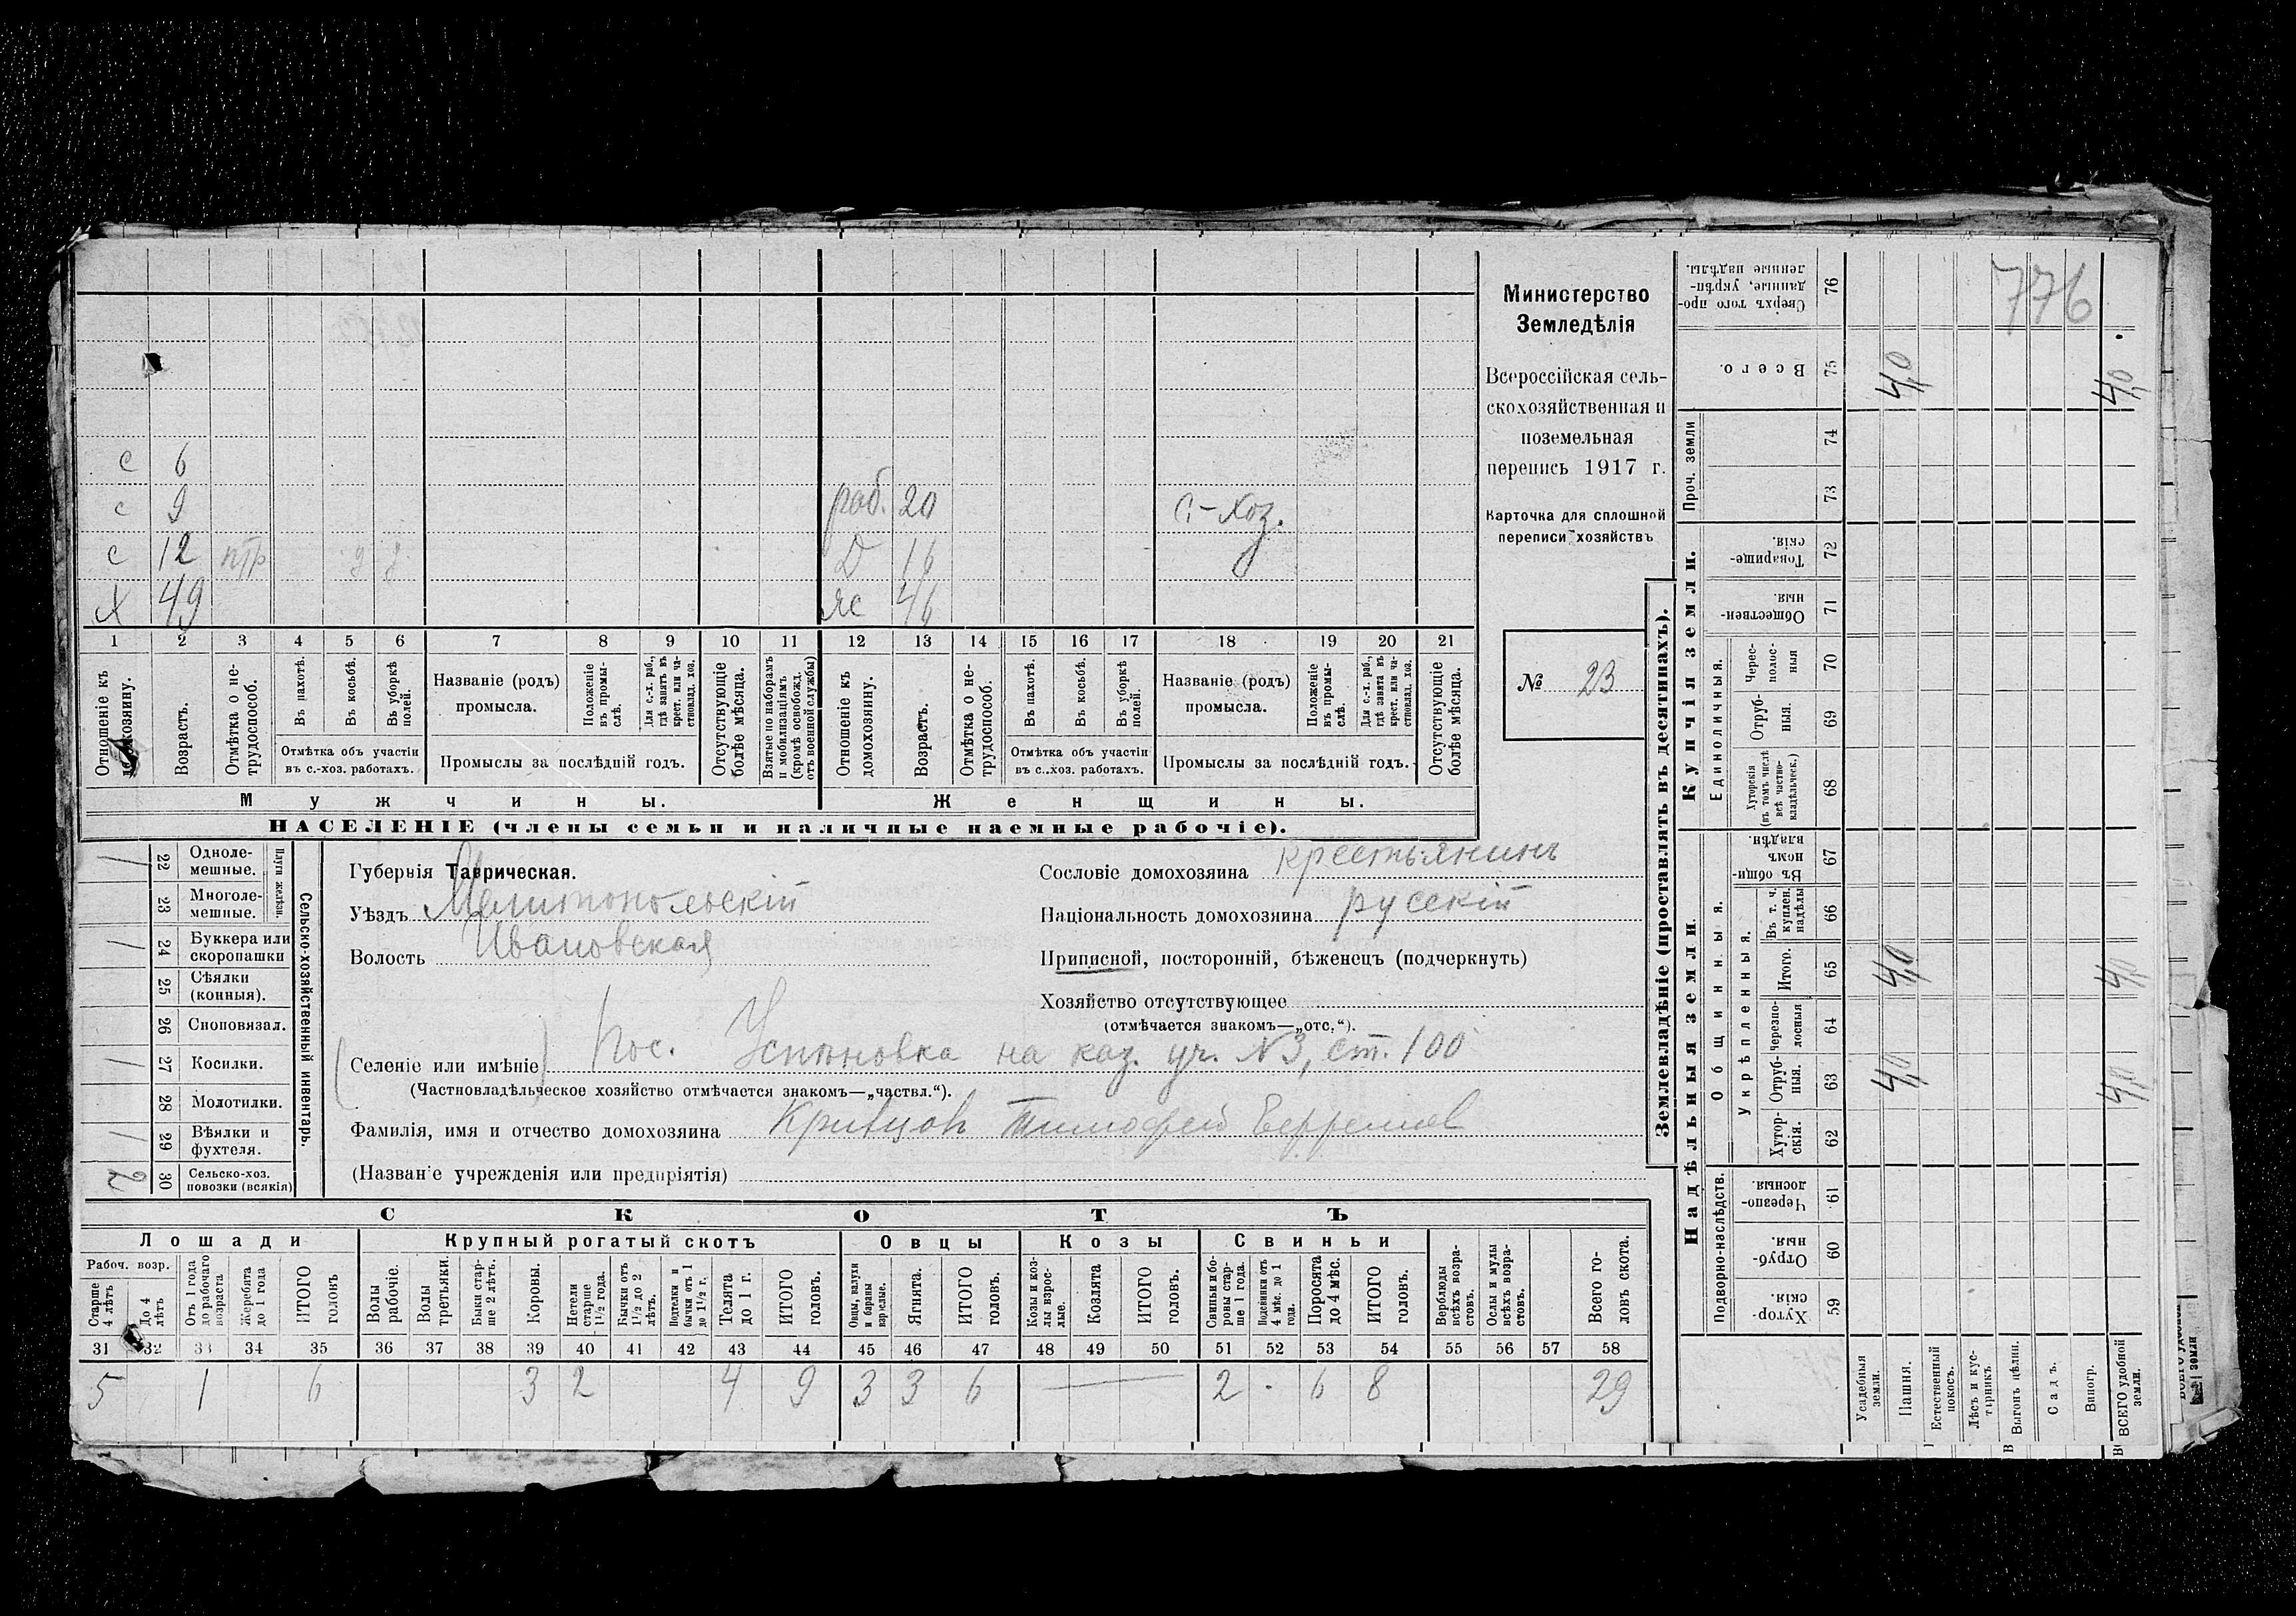 776
Министерство
Земледѣлія
Всероссійская сель-
скохозяйственная и
поземельная
перепись 1917 г.
Карточка для сплошной
переписи хозяйствъ
№ 23
с 6
с 9 раб. 20 с-хоз.
с 12 птр у у Д 16
Х 49 Же 46
1 2 3 4 5 6 7 8 9 10 11 12 13 14 15 16 17 18 19 20 21
Отношеніе къ домохозяину.
Возрастъ.
Отмѣтка о не-
трудоспособ.
Въ пахотѣ.
Въ косьбѣ.
Въ уборкѣ
полей.
Отмѣтка объ участіи
въ с.-хоз. работахъ.
Названіе (родъ)
промысла.
Положеніе
въ промы-
слѣ.
Для с.-х. раб.,
гдѣ занятъ въ
крест. или ча-
стновлад. хоз.
Промыслы за послѣдній годъ.
Отсутствующіе
болѣе мѣсяца.
Взятые по наборамъ
и мобилизаціямъ
(кромѣ освобожд.
отъ военной службы)
Отношеніе къ
домохозяину.
Возрастъ.
Отмѣтка о не-
трудоспособ.
Въ пахотѣ.
Въ косьбѣ.
Въ уборкѣ
полей.
Отмѣтка объ участіи
въ с.-хоз. работахъ.
Названіе (родъ)
промысла.
Положеніе
въ промы-
слѣ.
Для с.-х. раб.,
гдѣ занята въ
крест. или ча-
стновлад. хоз.
Промыслы за послѣдній годъ.
Отсутствующіе
болѣе мѣсяца.
Мужчины. Женщины.
НАСЕЛЕНІЕ (члены семьи и наличные наемные рабочіе).
Сельско-хозяйственный инвентарь.
Плуги желѣзн.
1 22 Одноле-
мешные.
23 Многоле-
мешные.
1 24 Буккера или
скоропашки
25 Сѣялки
(конныя).
26 Сноповязал.
1 27 Косилки.
28 Молотилки.
1 29 Вѣялки и
фухтеля.
2 30 Сельско-хоз.
повозки (всякія)
Губернія Таврическая.
Уѣздъ Мелитопольскій
Волость Ивановская
Сословіе домохозяина крестьянинъ
Національность домохозяина русскій
Приписной, посторонній, бѣженецъ (подчеркнуть)
Хозяйство отсутствующее
(отмѣчается знакомъ—„отс.“).
(Селеніе или имѣніе) Пос. Успеновка на каз. уч. №3, ст. 100
(Частновладѣльческое хозяйство отмѣчается знакомъ—„частвл.“).
Фамилія, имя и отчество домохозяина Кривцовъ Тимофей Ефремов
(Названіе учрежденія или предпріятія)
СКОТЪ
Лошади Крупный рогатый скотъ Овцы Козы Свиньи
Рабоч. возр.
Старше
4 лѣтъ
До 4
лѣтъ
Отъ 1 года
до рабочаго
возраста
Жеребята
до 1 года
ИТОГО
головъ
Волы
рабочіе.
Волы
третьяки.
Быки стар-
ше 2 лѣтъ.
Коровы.
Нетели
старше
1½ года.
Бычки отъ
1½ до 2
лѣтъ.
Подтелки и
бычки отъ 1
до 1½ г.
Телята
до 1 г.
ИТОГО
головъ.
Овцы, валухи
и бараны
взрослые.
Ягнята.
ИТОГО
головъ.
Козы и коз-
лы взрос-
лые.
Козлята
ИТОГО
головъ.
Свиньи и бо-
ровы стар-
ше 1 года.
Подсвинки отъ
4 мѣс. до 1
года.
Поросята
до 4 мѣс.
ИТОГО
головъ.
Верблюды
всѣхъ возра-
стовъ.
Ослы и мулы
всѣхъ возра-
стовъ.
Всего го-
ловъ скота.
31 32 33 34 35 36 37 38 39 40 41 42 43 44 45 46 47 48 49 50 51 52 53 54 55 56 57 58
5 1 6 3 2 4 9 3 3 6 — 2 . 6 8 29
Землевладѣніе (проставлять въ десятинахъ).
Купчія земли.
Надѣльныя земли.
Сверхъ того про-
данные, укрѣп-
ленные надѣлы. 76
Всего. 75 4,0 4,0
Проч. земли 74
73
Товарище-
скія. 72
Обществен-
ныя. 71
Единоличныя.
Черес-
полос-
ныя 70
Отруб-
ныя. 69
Хуторскія
(въ томъ числѣ
всѣ частно-
владѣльческ.) 68
Общинныя.
Въ общи-
номъ
владѣн. 67
Укрѣпленныя.
Въ т. ч.
куплен.
надѣлы 66
Итого. 65 4,0 4,0
Черезпо-
лосныя 64
Отруб-
ныя. 63 4,0 4,0
Хутор-
скія. 62
Подворно-наслѣдств.
Черезпо-
лосныя 61
Отруб-
ныя. 60
Хутор-
скія. 59
Усадебныя
земли.
Пашня.
Естественный
покосъ.
Лѣсъ и кус-
тарникъ
Выгонъ цѣлин.
Садъ.
Виногр.
ВСЕГО удобной
земли.